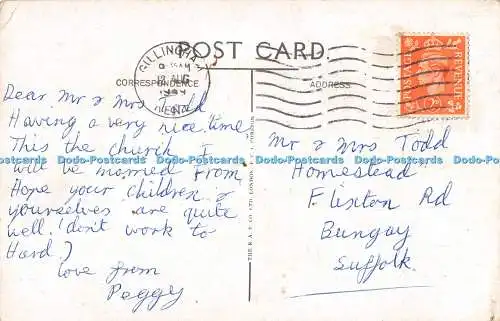 POST CARD.
CORRESPONDENCE
ADDRESS
GILLINGHAM
12 AUG
KENT
POSTAGE
REVENUE
Dear Mr & Mrs Todd
Having a very nice time
This the church I
will be married from
Hope your children &
yourselves are quite
well. (don't work to
Hard)
love from
Peggy
Mr & Mrs Todd
Homestead
Flixton Rd
Bungay
Suffolk.
Dodo-Postcards Dodo-Postcards Dodo-Postcards Dodo-Postcards Dodo-Postcards Dodo-Postcards